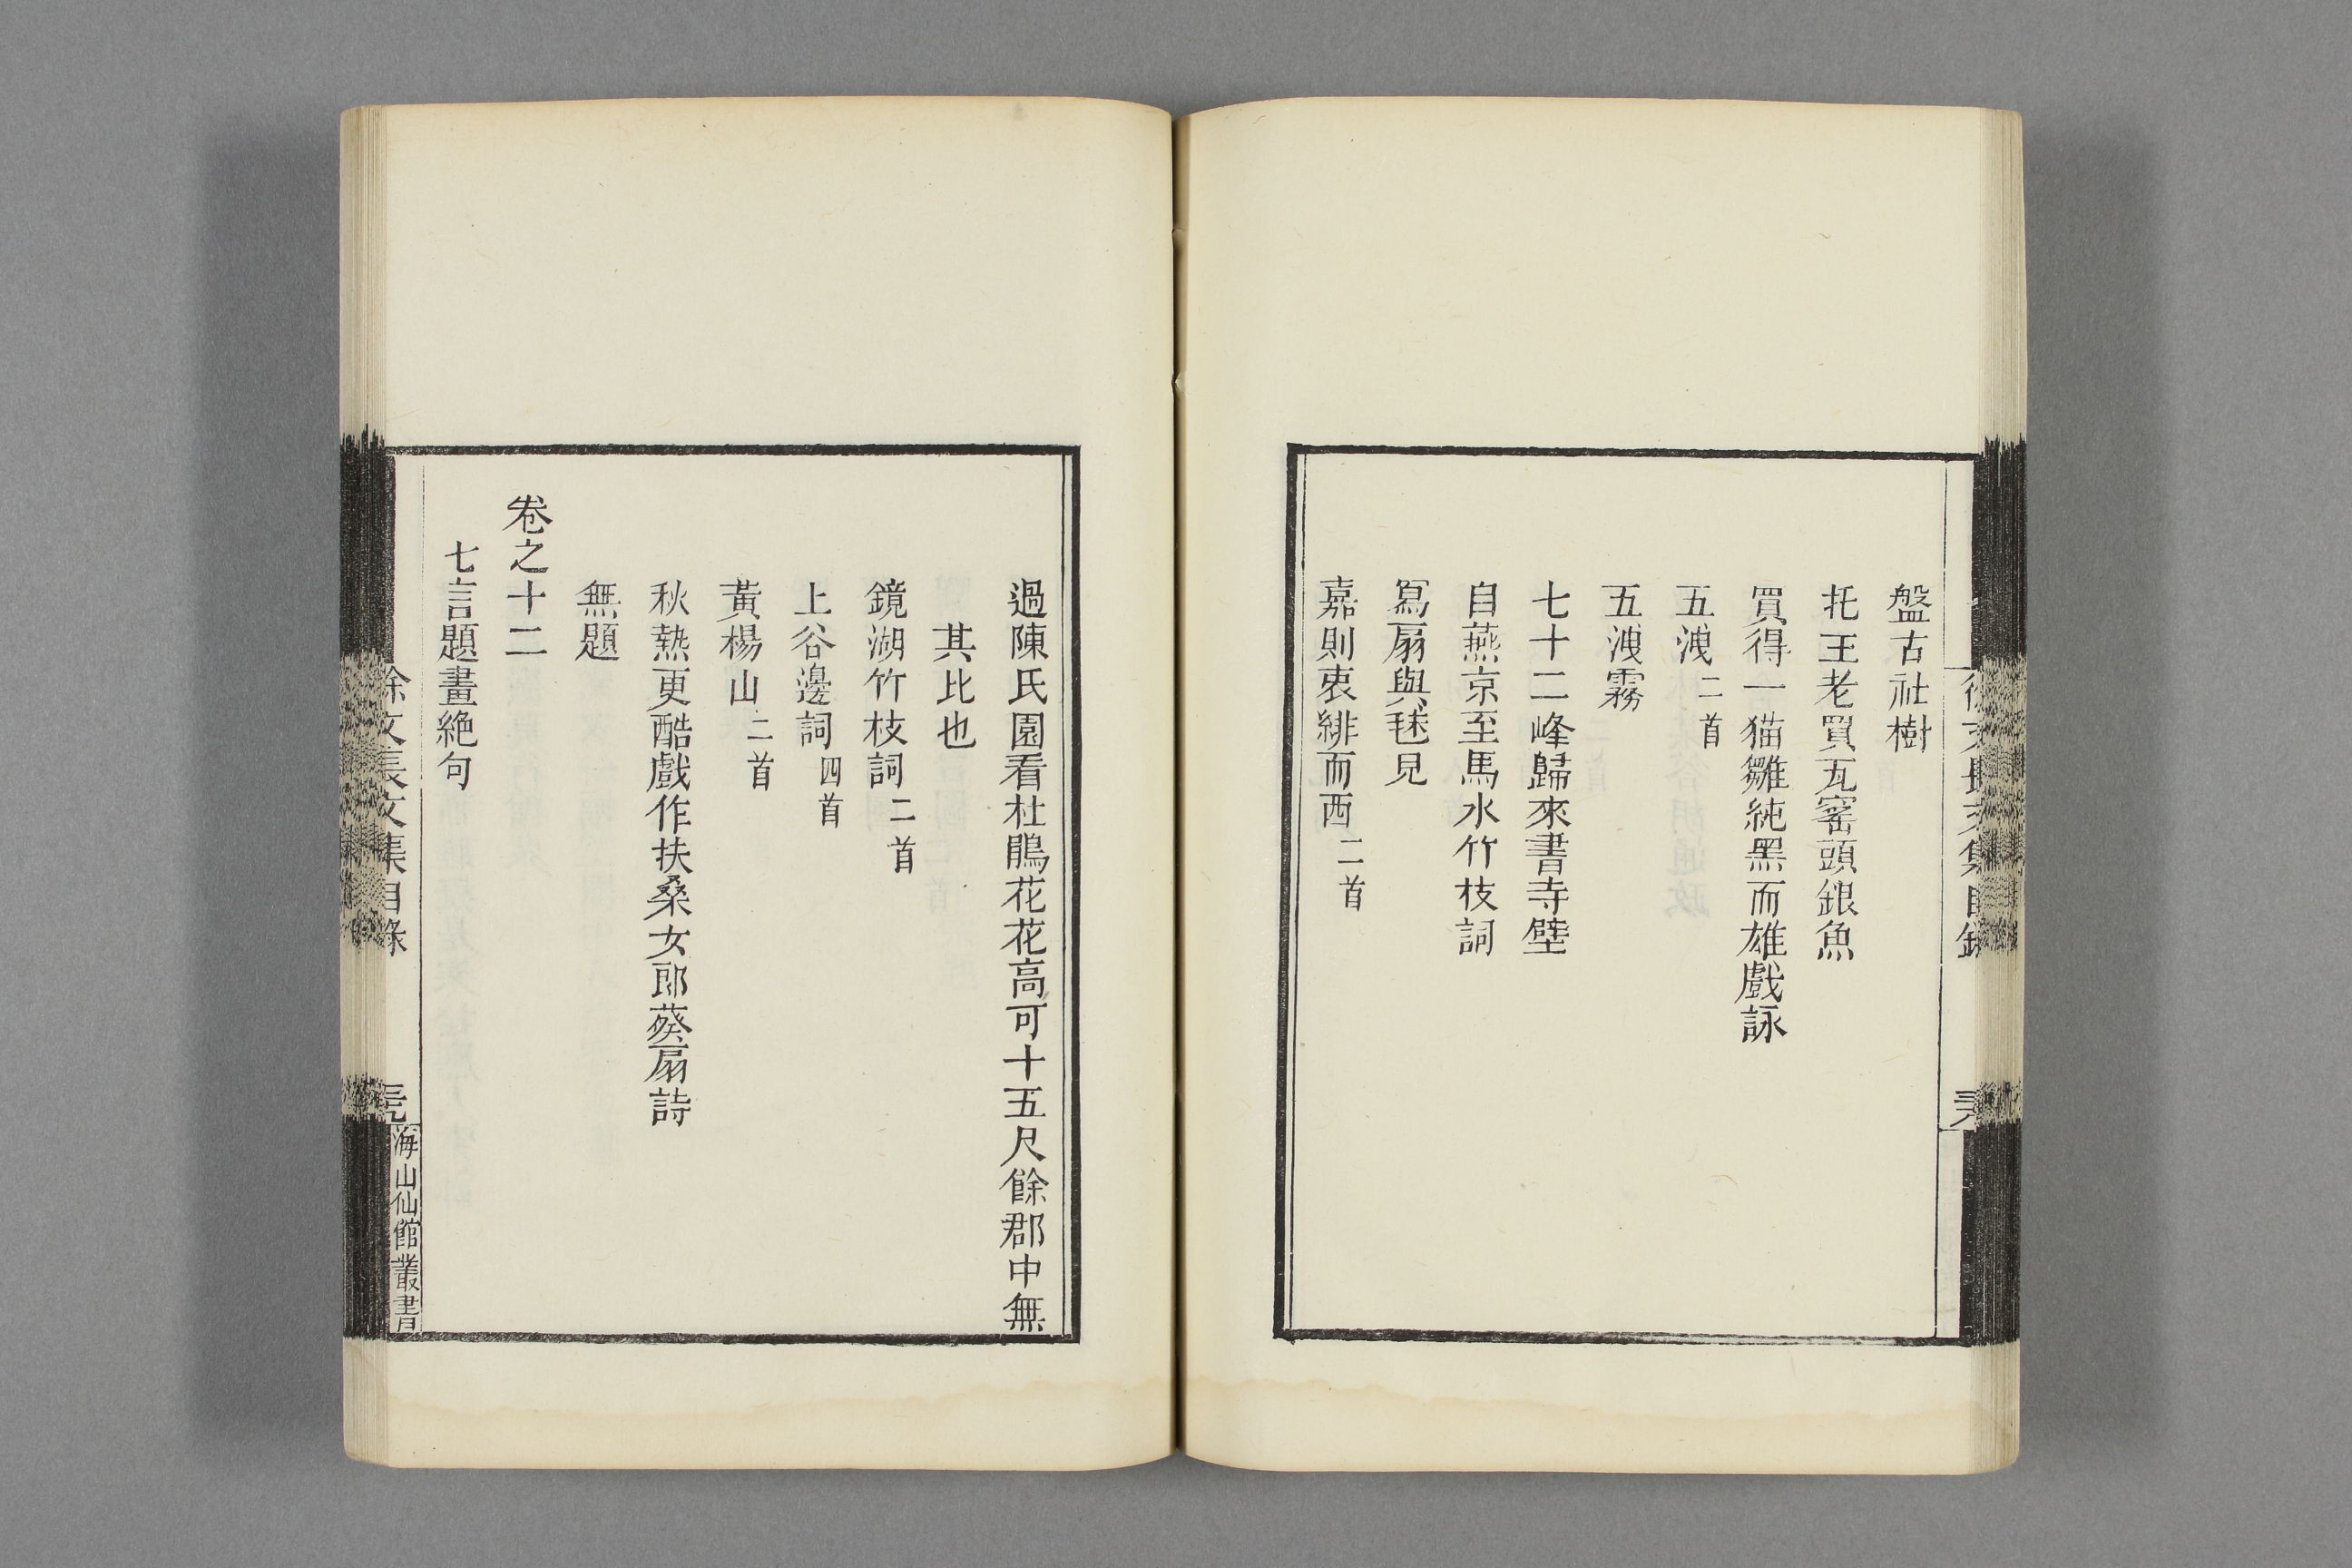 盤古社樹
托王老買瓦窰頭銀魚
買得一猫雛純黑而雄戲詠
五洩二首
五洩霧
七十二峰歸來書寺壁
自燕京至馬水竹枝詞
寫扇與毬兒
嘉則衷緋而西二首
過陳氏園看杜鵑花花高可十五尺餘郡中無
其比也
鏡湖竹枝詞二首
上谷邊詞四首
黃楊山二首
秋熱更酷戲作扶桑女郎葵扇詩
無題
卷之十二
七言題畫絶句
徐文長文集目錄
海山仙館叢書